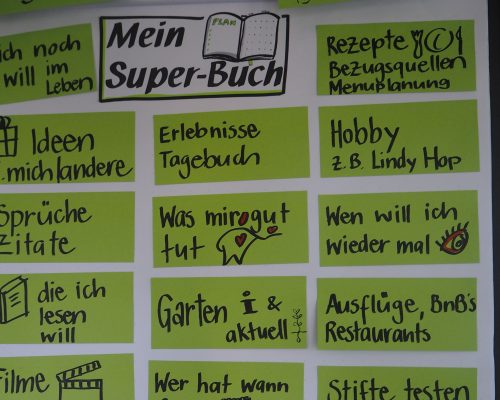 ich noch
will im
Leben
PLAN
Mein
Super-Buch
Rezepte
Bezugsquellen
Menuplanung
Ideen
mich/andere
Erlebnisse
Tagebuch
Hobby
z.B. Lindy Hop
Sprüche
Zitate
Was mir gut
tut
Wen will ich
wieder mal
die ich
lesen
will
Garten i &
aktuell
Ausflüge, BnB's
Restaurants
Filme
Wer hat wann
Stifte testen